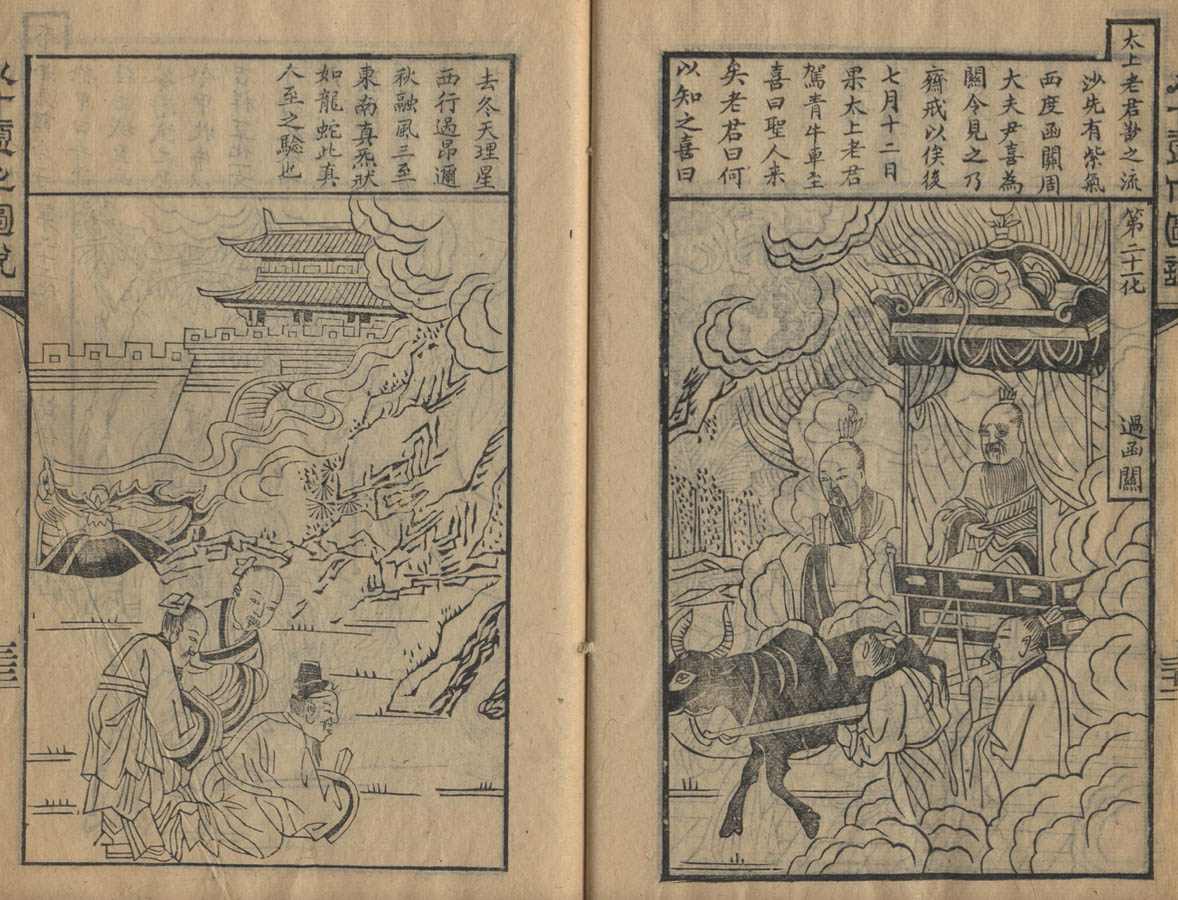 太上老君欲之流
沙先有紫氣
西度函關周
大夫尹喜為
關令見之乃
齋戒以俟後
七月十二日
果太上老君
駕青牛車至
喜曰聖人来
矣老君曰何
以知之喜曰
第二十化
過函關
去冬天理星
西行過昴邇
秋融風三至
東南真炁狀
如龍蛇此真
人至之驗也
八十一化圖說